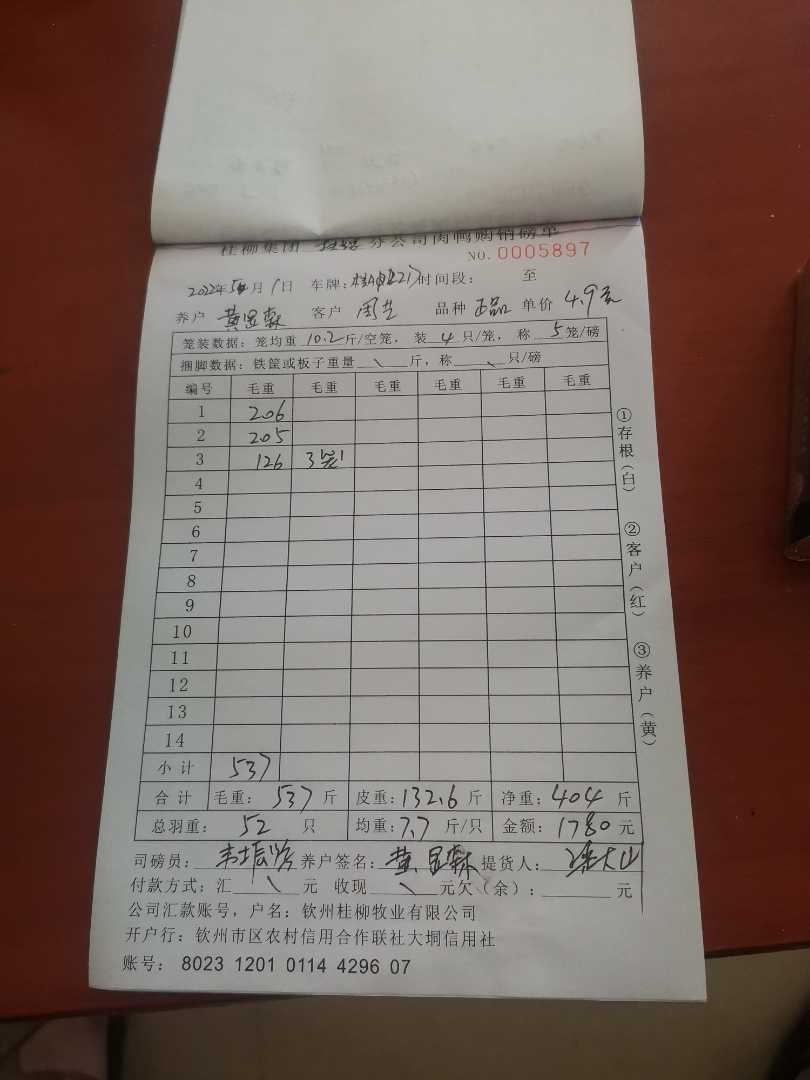 桂柳集团 分公司肉鸭购销磅单
NO. 0005897
2022年5月1日 车牌: 时间段: 至
养户 黄显森 客户 周芝 品种 正品 单价 4.9元
笼装数据: 笼均重 10.2 斤/空笼, 装 4 只/笼, 称 5 笼/磅
捆脚数据: 铁筐或板子重量 \ 斤, 称 \ 只/磅
编号 毛重 毛重 毛重 毛重 毛重 毛重
1 206
2 205
3 126 3笼
4
5
6
7
8
9
10
11
12
13
14
小计 537
合计 毛重: 537 斤 皮重: 132.6 斤 净重: 404 斤
总羽重: 52 只 均重: 7.7 斤/只 金额: 1780 元
司磅员: 养户签名: 黄显森 提货人:
付款方式: 汇 \ 元 收现 \ 元欠(余): 元
公司汇款账号, 户名: 钦州桂柳牧业有限公司
开户行: 钦州市区农村信用合作联社大垌信用社
账号: 8023 1201 0114 4296 07
①存根(白)
②客户(红)
③养户(黄)